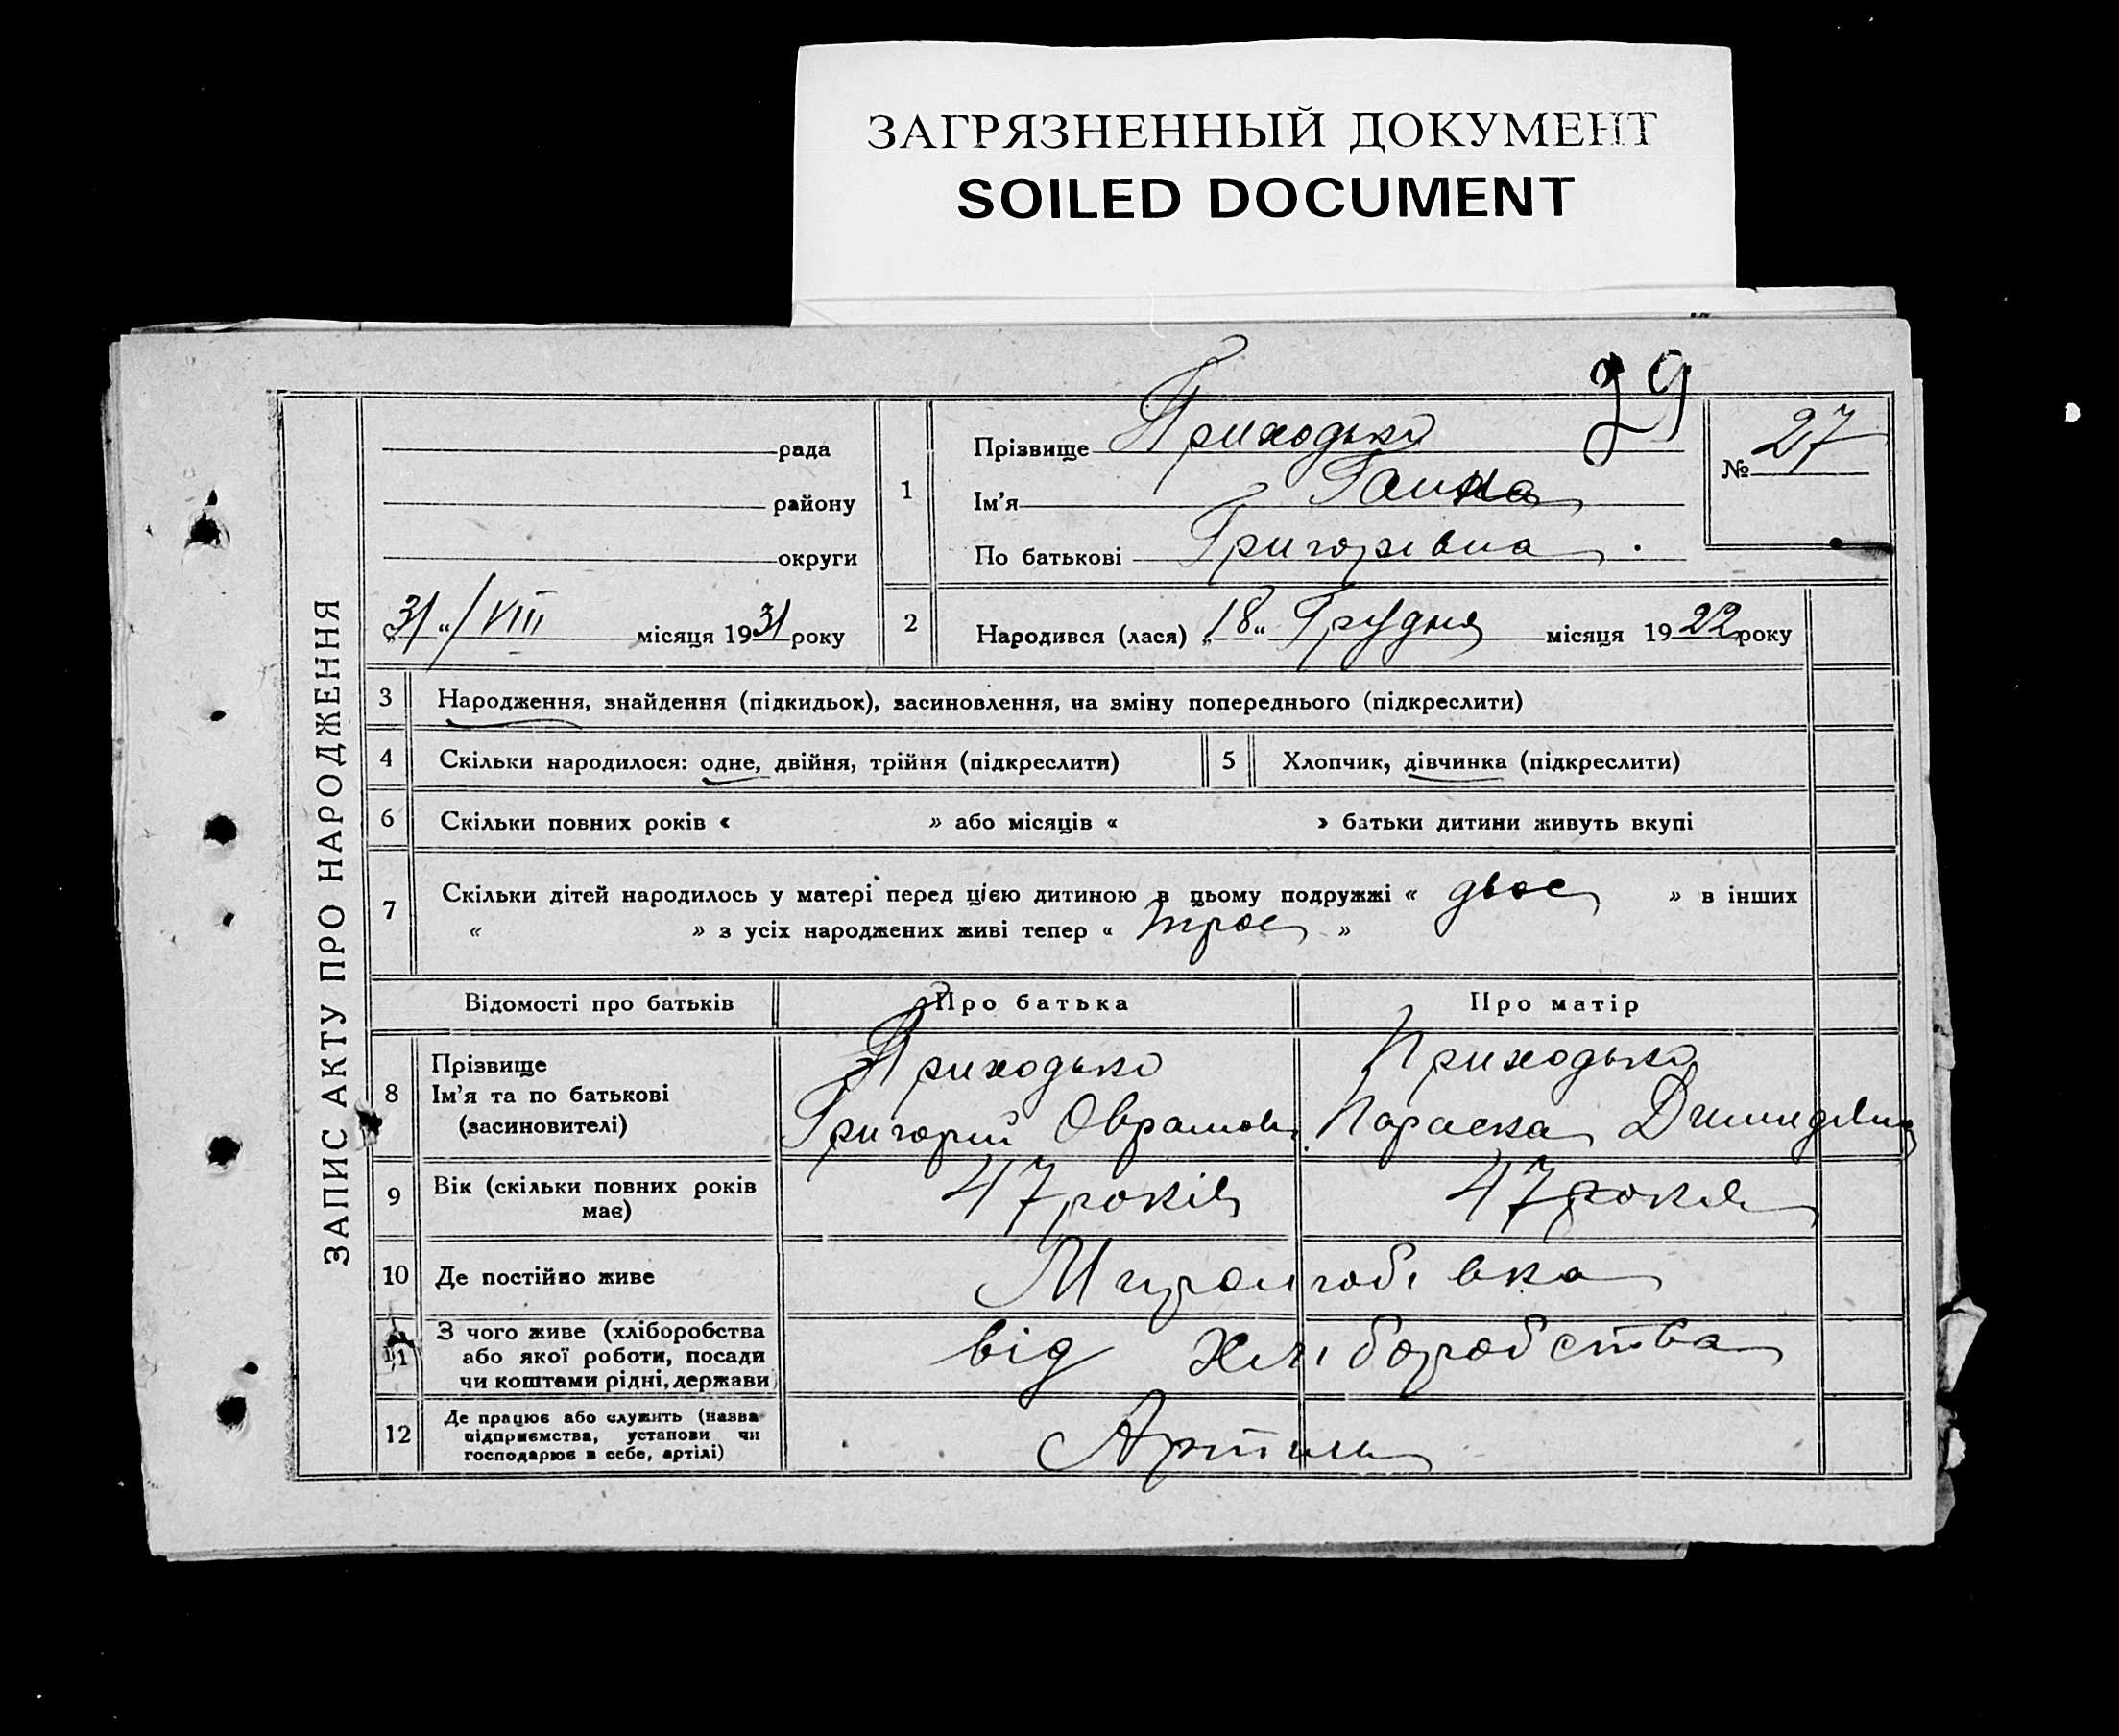 ЗАГРЯЗНЕННЫЙ ДОКУМЕНТ
SOILED DOCUMENT
29
ЗАПИС АКТУ ПРО НАРОДЖЕННЯ
рада
району
округи
„31“/VIII місяця 1931 року
1
Прізвище Приходько
Ім’я Ганна
По батькові Григорівна.
№ 27
2
Народився (лася) „18“ Грудня місяця 1922 року
3 Народження, знайдення (підкидьок), засиновлення, на зміну попереднього (підкреслити)
4 Скільки народилося: одне, двійня, трійня (підкреслити)
5 Хлопчик, дівчинка (підкреслити)
6 Скільки повних років « » або місяців « » батьки дитини живуть вкупі
7 Скільки дітей народилось у матері перед цією дитиною в цьому подружжі « двоє » в інших
« » з усіх народжених живі тепер « троє »
Відомості про батьків
Про батька
Про матір
8
Прізвище
Ім’я та по батькові
(засиновителі)
Приходько
Григорий Оврамов
Приходько
Параска
9
Вік (скільки повних років
має)
47 років
47 років
10 Де постійно живе
11
З чого живе (хліборобства
або якої роботи, посади
чи коштами рідні, держави
від Хліборобства
12
Де працює або служить (назва
підприємства, установи чи
господарює в себе, артілі)